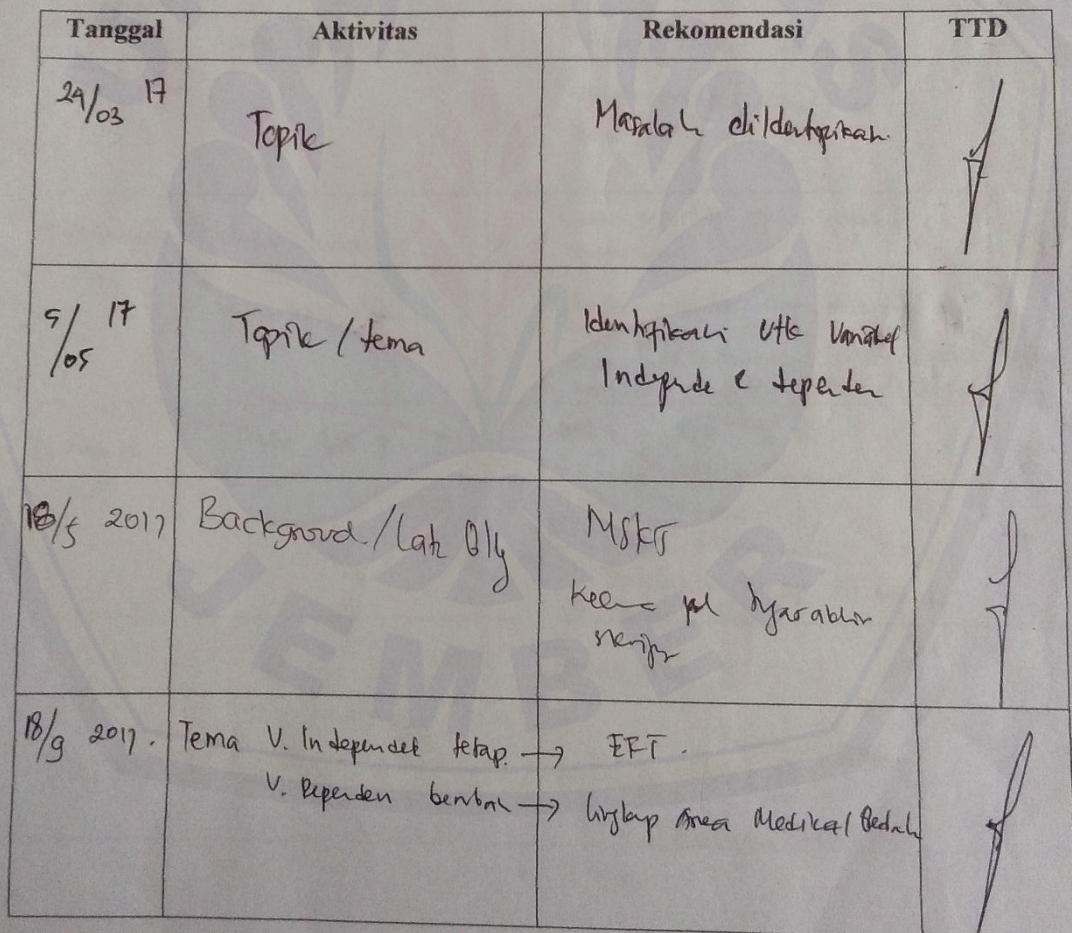 Tanggal Aktivitas Rekomendasi TTD
24/03 17 Topik Masalah diidentifikasi.
5/05 17 Topik / tema Identifikasi utk Variabel
Independe e dependen
18/5 2017 Background / Latar Blkg MSKG
skripsi
18/9 2017. Tema V. Independet tetap. → EFT.
V. Dependen berubah → lingkup Area Medikal Bedah
JEMBER